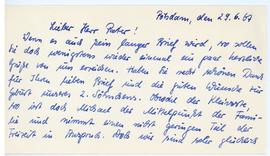 Potsdam, den 29.6.67
Lieber Herr Pater!
Wenn es auch kein langer Brief wird, so sollen
Sie doch wenigstens wieder einmal ein paar herzliche
Grüße von uns erreichen. Haben Sie recht schönen Dank
für Ihren lieben Brief und die guten Wünsche zur
Geburt unseres 2. Söhnchens. Obwohl der Kleinste,
so ist doch Michael der Mittelpunkt der Fami-
lie und nimmt einen nicht geringen Teil der
Freizeit in Anspruch. Doch wir sind voller glücklich